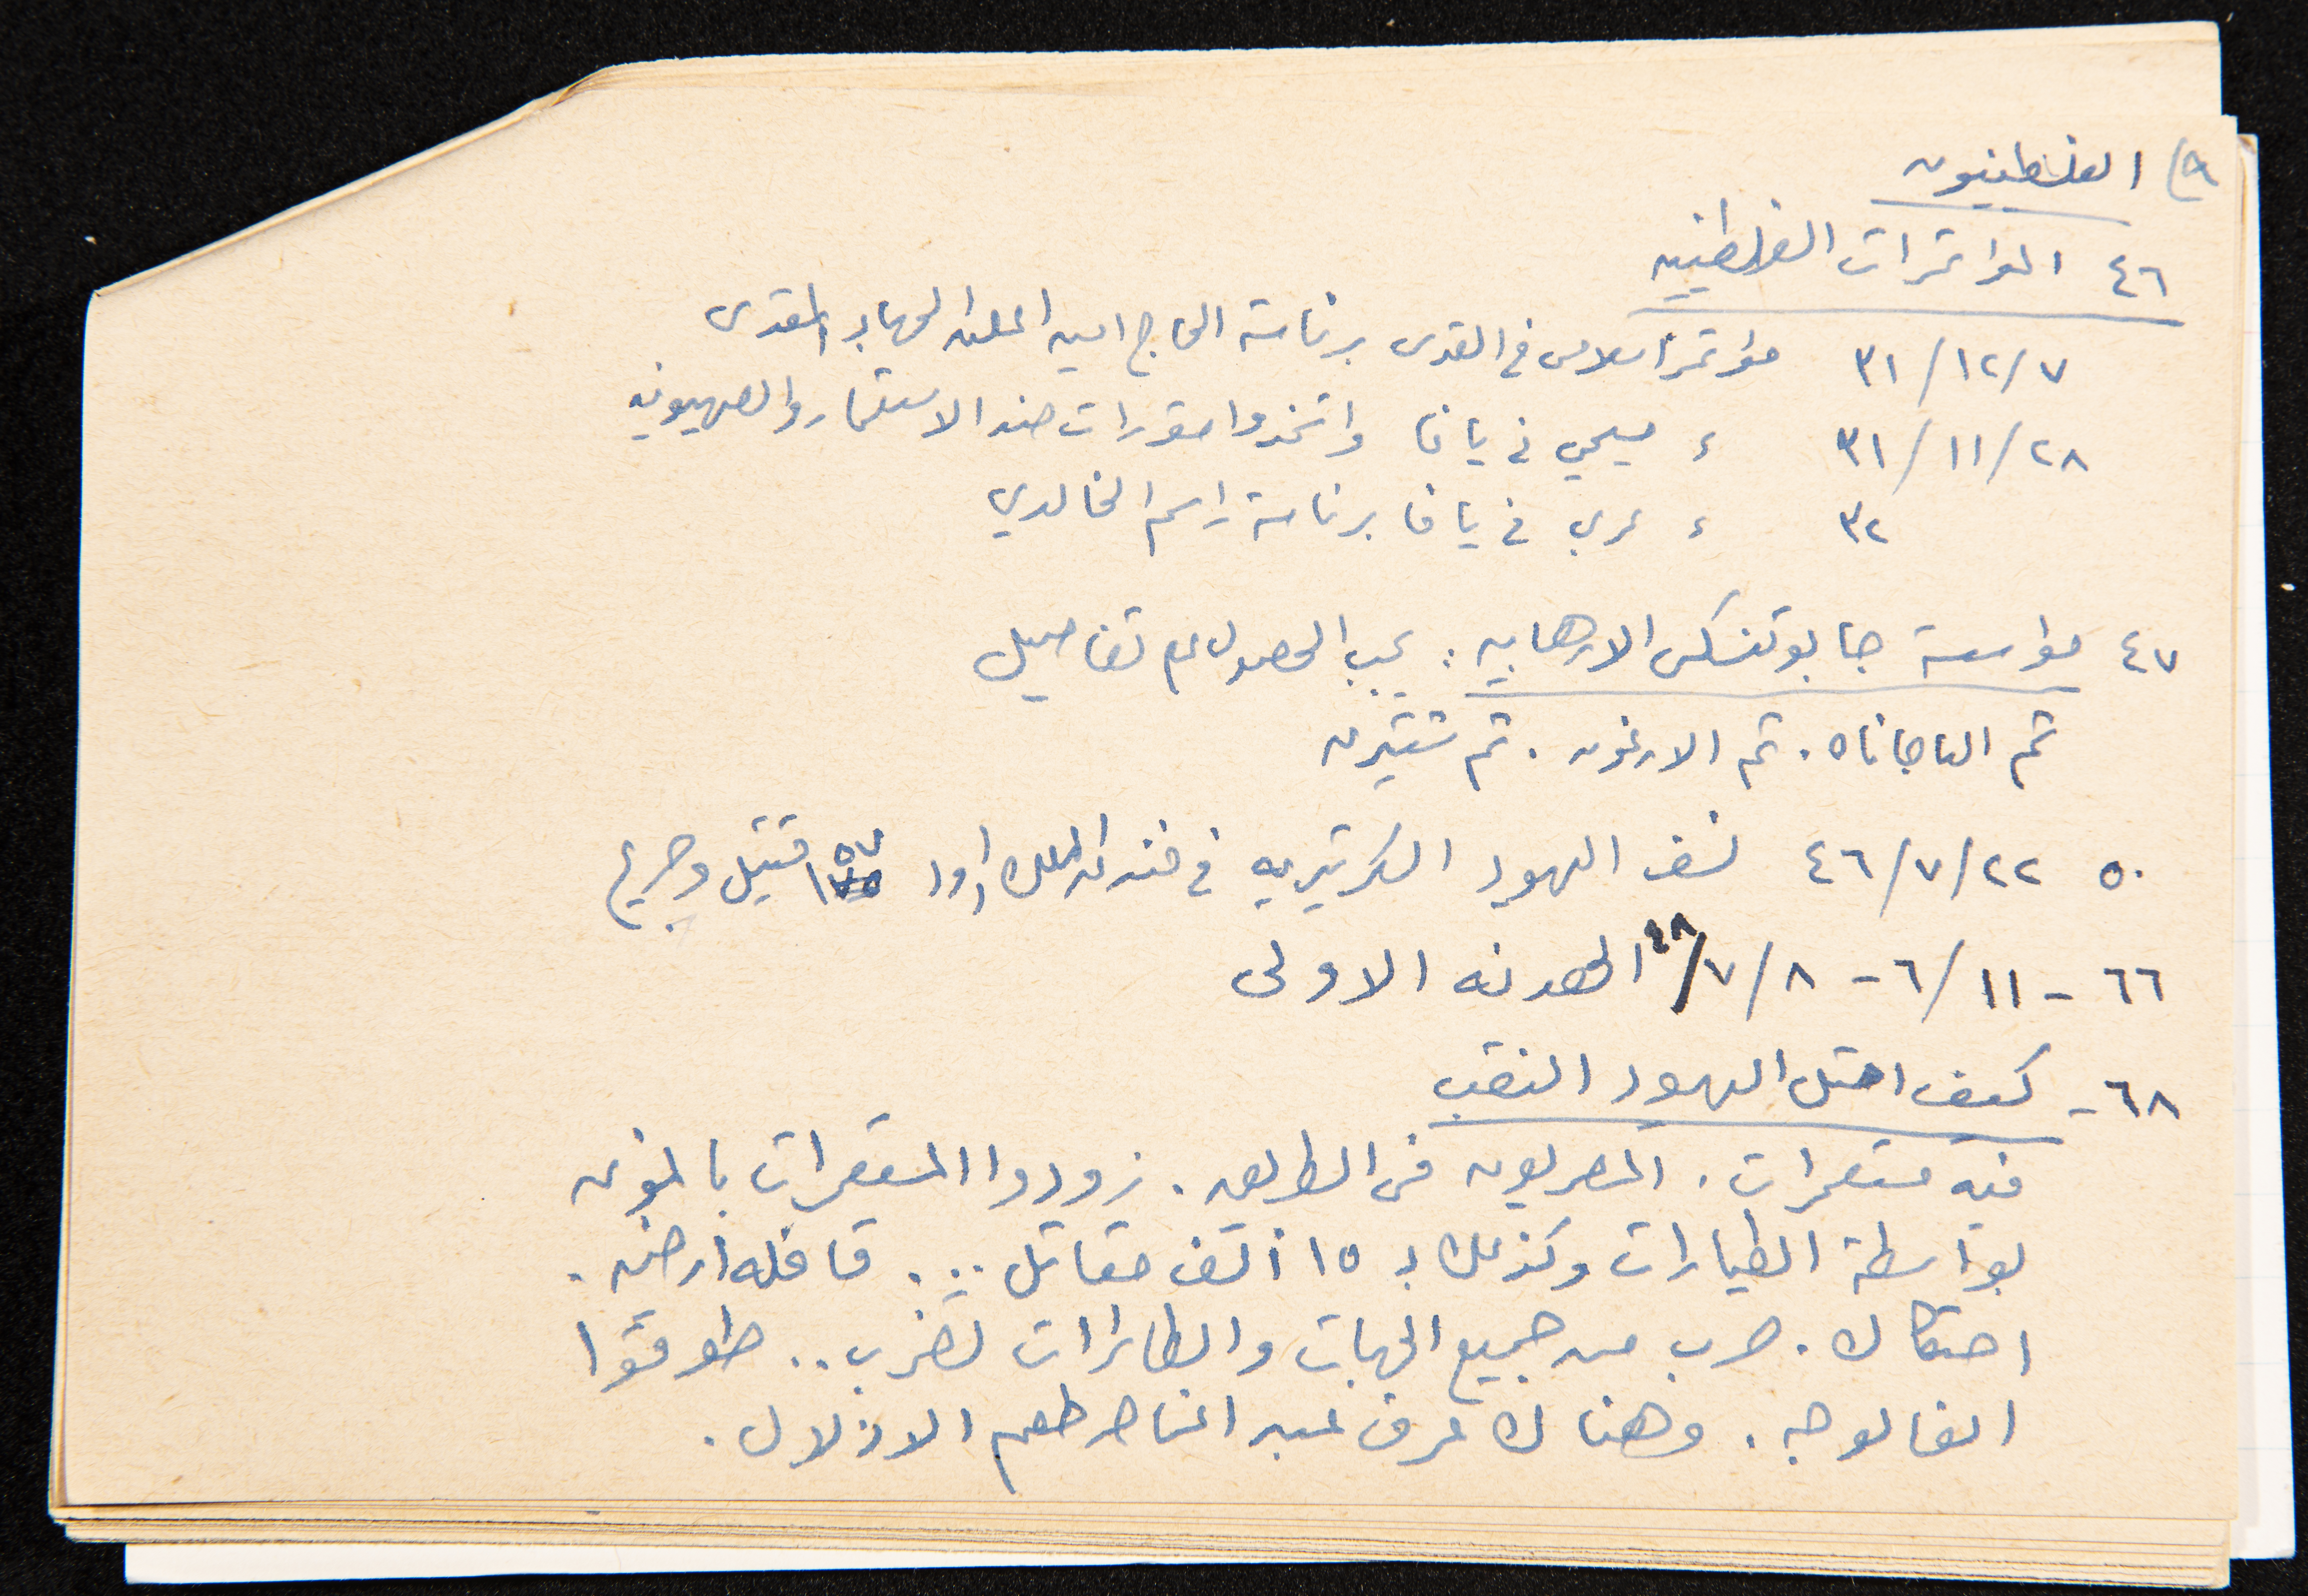 ٩) الفلسطينيون
٤٦ المؤتمرات الفلسطينيه
٣١/١٢/٧ مؤتمر اسلامي في القدس برئاسة الحاج امين اعلن الجهاد المقدس
٣١/١١/٢٨ ء مسيحي في يافا واتخذوا مقررات ضد الاستعمار والصهيونيه
٣٢ ء عربي في يافا برئاسة راسم الخالدي
٤٧ مؤسسة جابوتنسكي الارهابيه : يجب الحصول على تفاصيل
ثم الهاجاناه . ثم الارغون . ثم شتيرن
٥٠ ٤٦/٧/٢٢ نسف اليهود السكرتيريه في فندق الملك داود قتيل وجريح
٦٦ - ٦/١١ - ٤٨/٧/٨ الهدنه الاولى
٦٨ - كيف احتل اليهود النقب
فيه مستعمرات . المصريون في الطريق . زودوا المستعمرات بالمؤن
بواسطة الطيارات وكذلك بـ ١٥ ألف مقاتل ... قافله أرضيه .
احتكاك . ضرب من جميع الجهات والطائرات تضرب .. طوقوا
الفالوجه . وهناك عرف عبد الناصر طعم الاذلال .